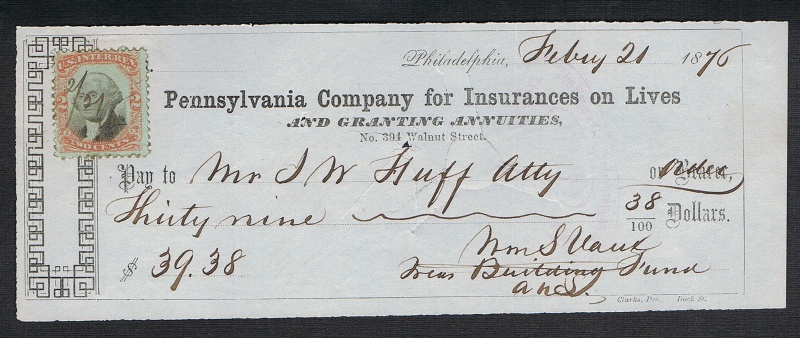 Philadelphia, Febry 21 1876
U.S. INTER. REV.
2/21
TWO CENTS
Pennsylvania Company for Insurances on Lives
AND GRANTING ANNUITIES,
No. 304 Walnut Street.
Pay to Mr J W Huff Atty or Bearer, Order
Thirty nine 38/100 Dollars.
$ 39.38
Wm S Vaux
Treas Building Fund
A N S.
Clarke, Pr., Dock St.